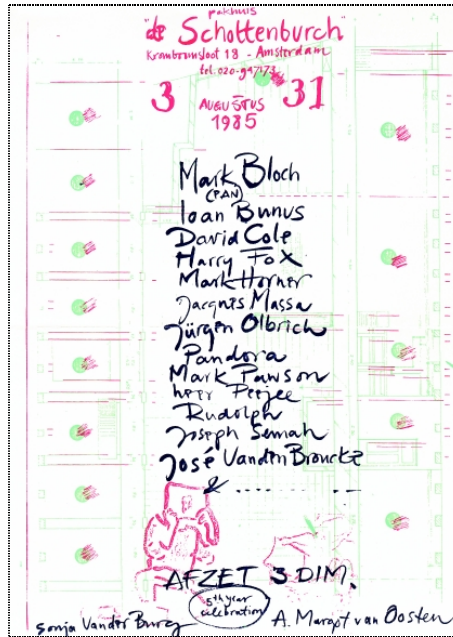 pakhuis
"de Schottenburch
Kromboomsloot 18 - Amsterdam
tel. 020-947173
3 AUGUSTUS 31
1985
Mark Bloch
(PAN)
Ioan Bunus
David Cole
Harry Fox
Mark Horner
Jacques Massa
Jürgen Olbrich
Pandora
Mark Pawson
heer Peejee
Rudolph
Joseph Semah
José VandenBroucke
& ..... .. .
AFZET 3 DIM.
5th year
celebration
Sonja Vander Burg A. Margot van Oosten